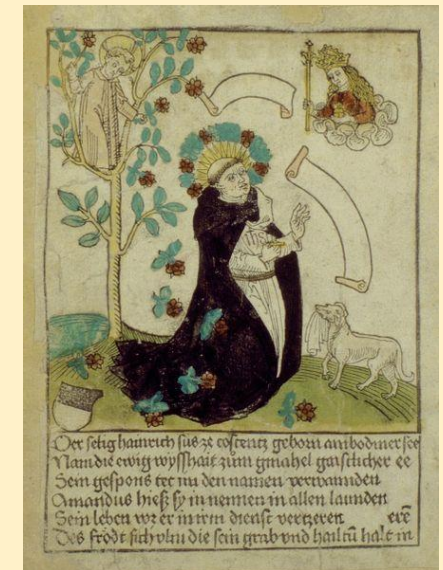 Der selig hainrich sus ze costentz geborn am bodmer see
Nam die ewig wysshait zum gmahel gaistlicher ee
Sein gespons tet im den namen verwannden
Amandus hieß sy in nennen in allen lannden
Sein leben vor er in irm dienst vertzeren ere
Des frödt sich vlm die sein grab vnd hailtū halt in